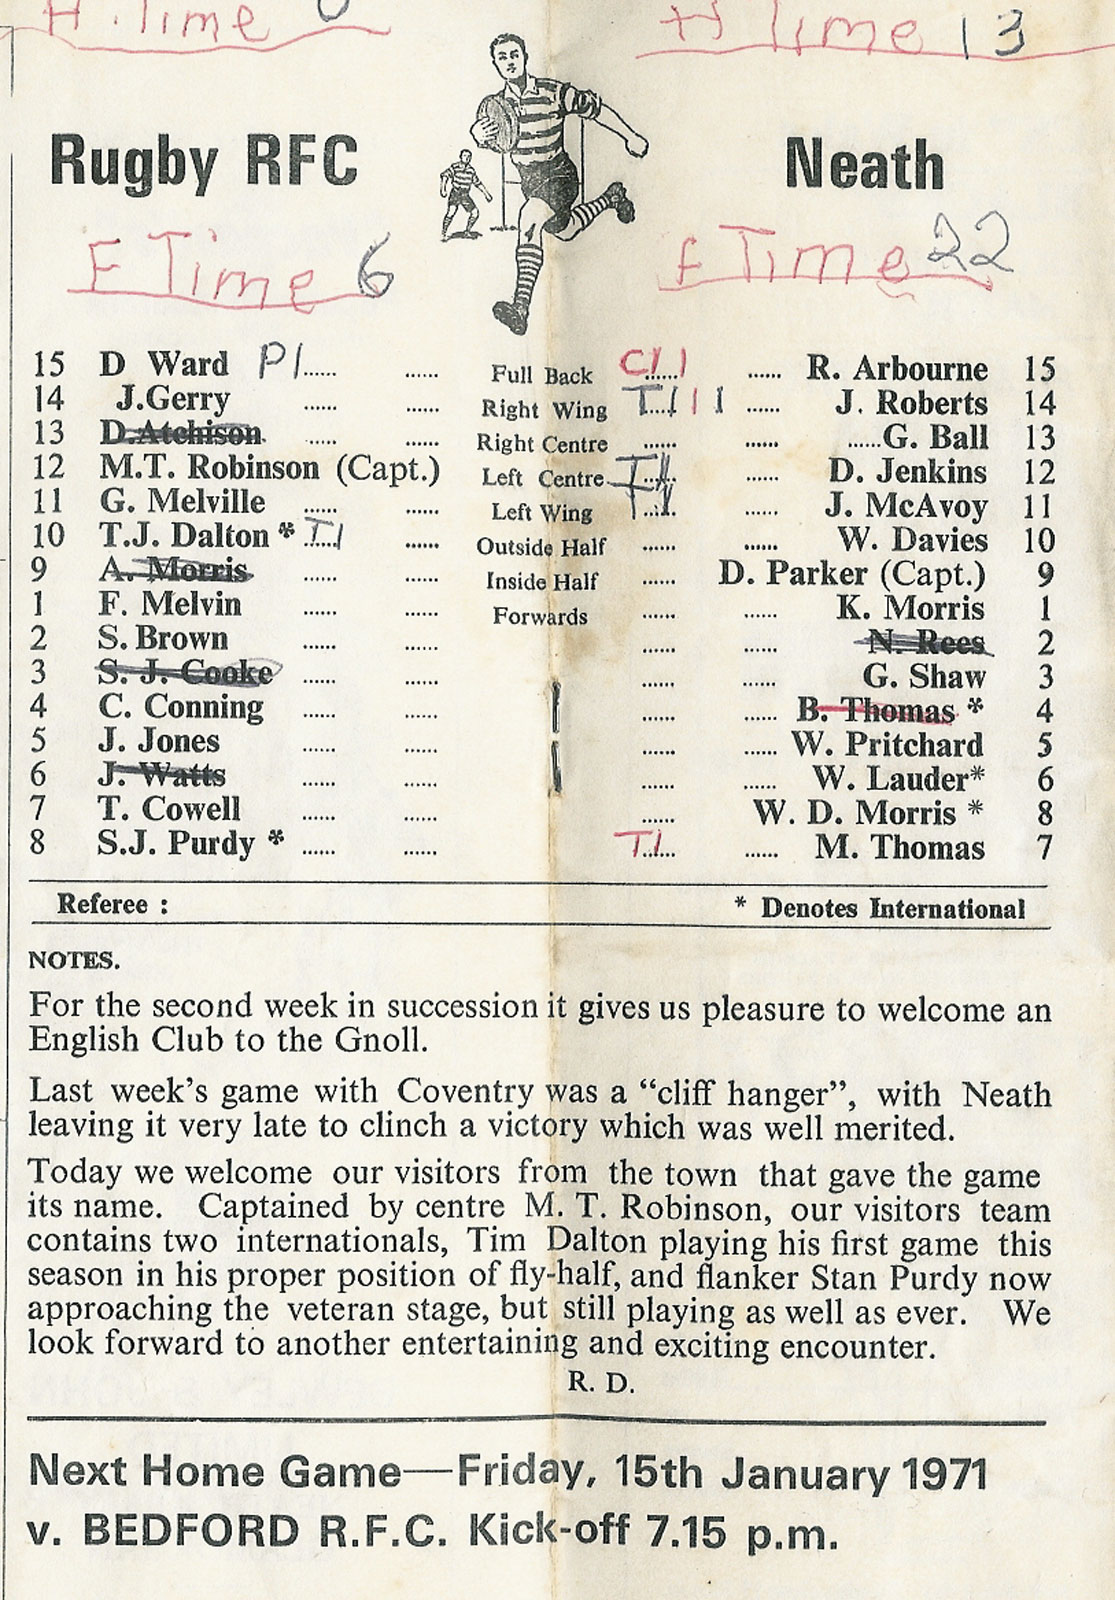 H. Time 0 H Time 13
Rugby RFC Neath
F Time 6 F Time 22
15 D Ward P1...... ...... Full Back C11 ...... ...... R. Arbourne 15
14 J.Gerry ...... ...... Right Wing T111 ...... J. Roberts 14
13 D.Atchison ...... ...... Right Centre ...... ...... ......G. Ball 13
12 M.T. Robinson (Capt.) Left Centre ...... ...... D. Jenkins 12
11 G. Melville ...... ...... Left Wing ...... ...... J. McAvoy 11
10 T.J. Dalton * T1 ...... ...... Outside Half ...... ...... W. Davies 10
9 A. Morris ...... ...... Inside Half ...... D. Parker (Capt.) 9
1 F. Melvin ...... ...... Forwards ...... ...... K. Morris 1
2 S. Brown ...... ...... ...... ...... N. Rees 2
3 S. J. Cooke ...... ...... ...... ...... G. Shaw 3
4 C. Conning ...... ...... ...... ...... B. Thomas * 4
5 J. Jones ...... ...... ...... ...... W. Pritchard 5
6 J. Watts ...... ...... ...... ...... W. Lauder* 6
7 T. Cowell ...... ...... ...... W. D. Morris * 8
8 S.J. Purdy * ...... ...... T1...... ...... M. Thomas 7
Referee : * Denotes International
NOTES.
For the second week in succession it gives us pleasure to welcome an
English Club to the Gnoll.
Last week's game with Coventry was a “cliff hanger”, with Neath
leaving it very late to clinch a victory which was well merited.
Today we welcome our visitors from the town that gave the game
its name. Captained by centre M. T. Robinson, our visitors team
contains two internationals, Tim Dalton playing his first game this
season in his proper position of fly-half, and flanker Stan Purdy now
approaching the veteran stage, but still playing as well as ever. We
look forward to another entertaining and exciting encounter.
R. D.
Next Home Game—Friday, 15th January 1971
v. BEDFORD R.F.C. Kick-off 7.15 p.m.